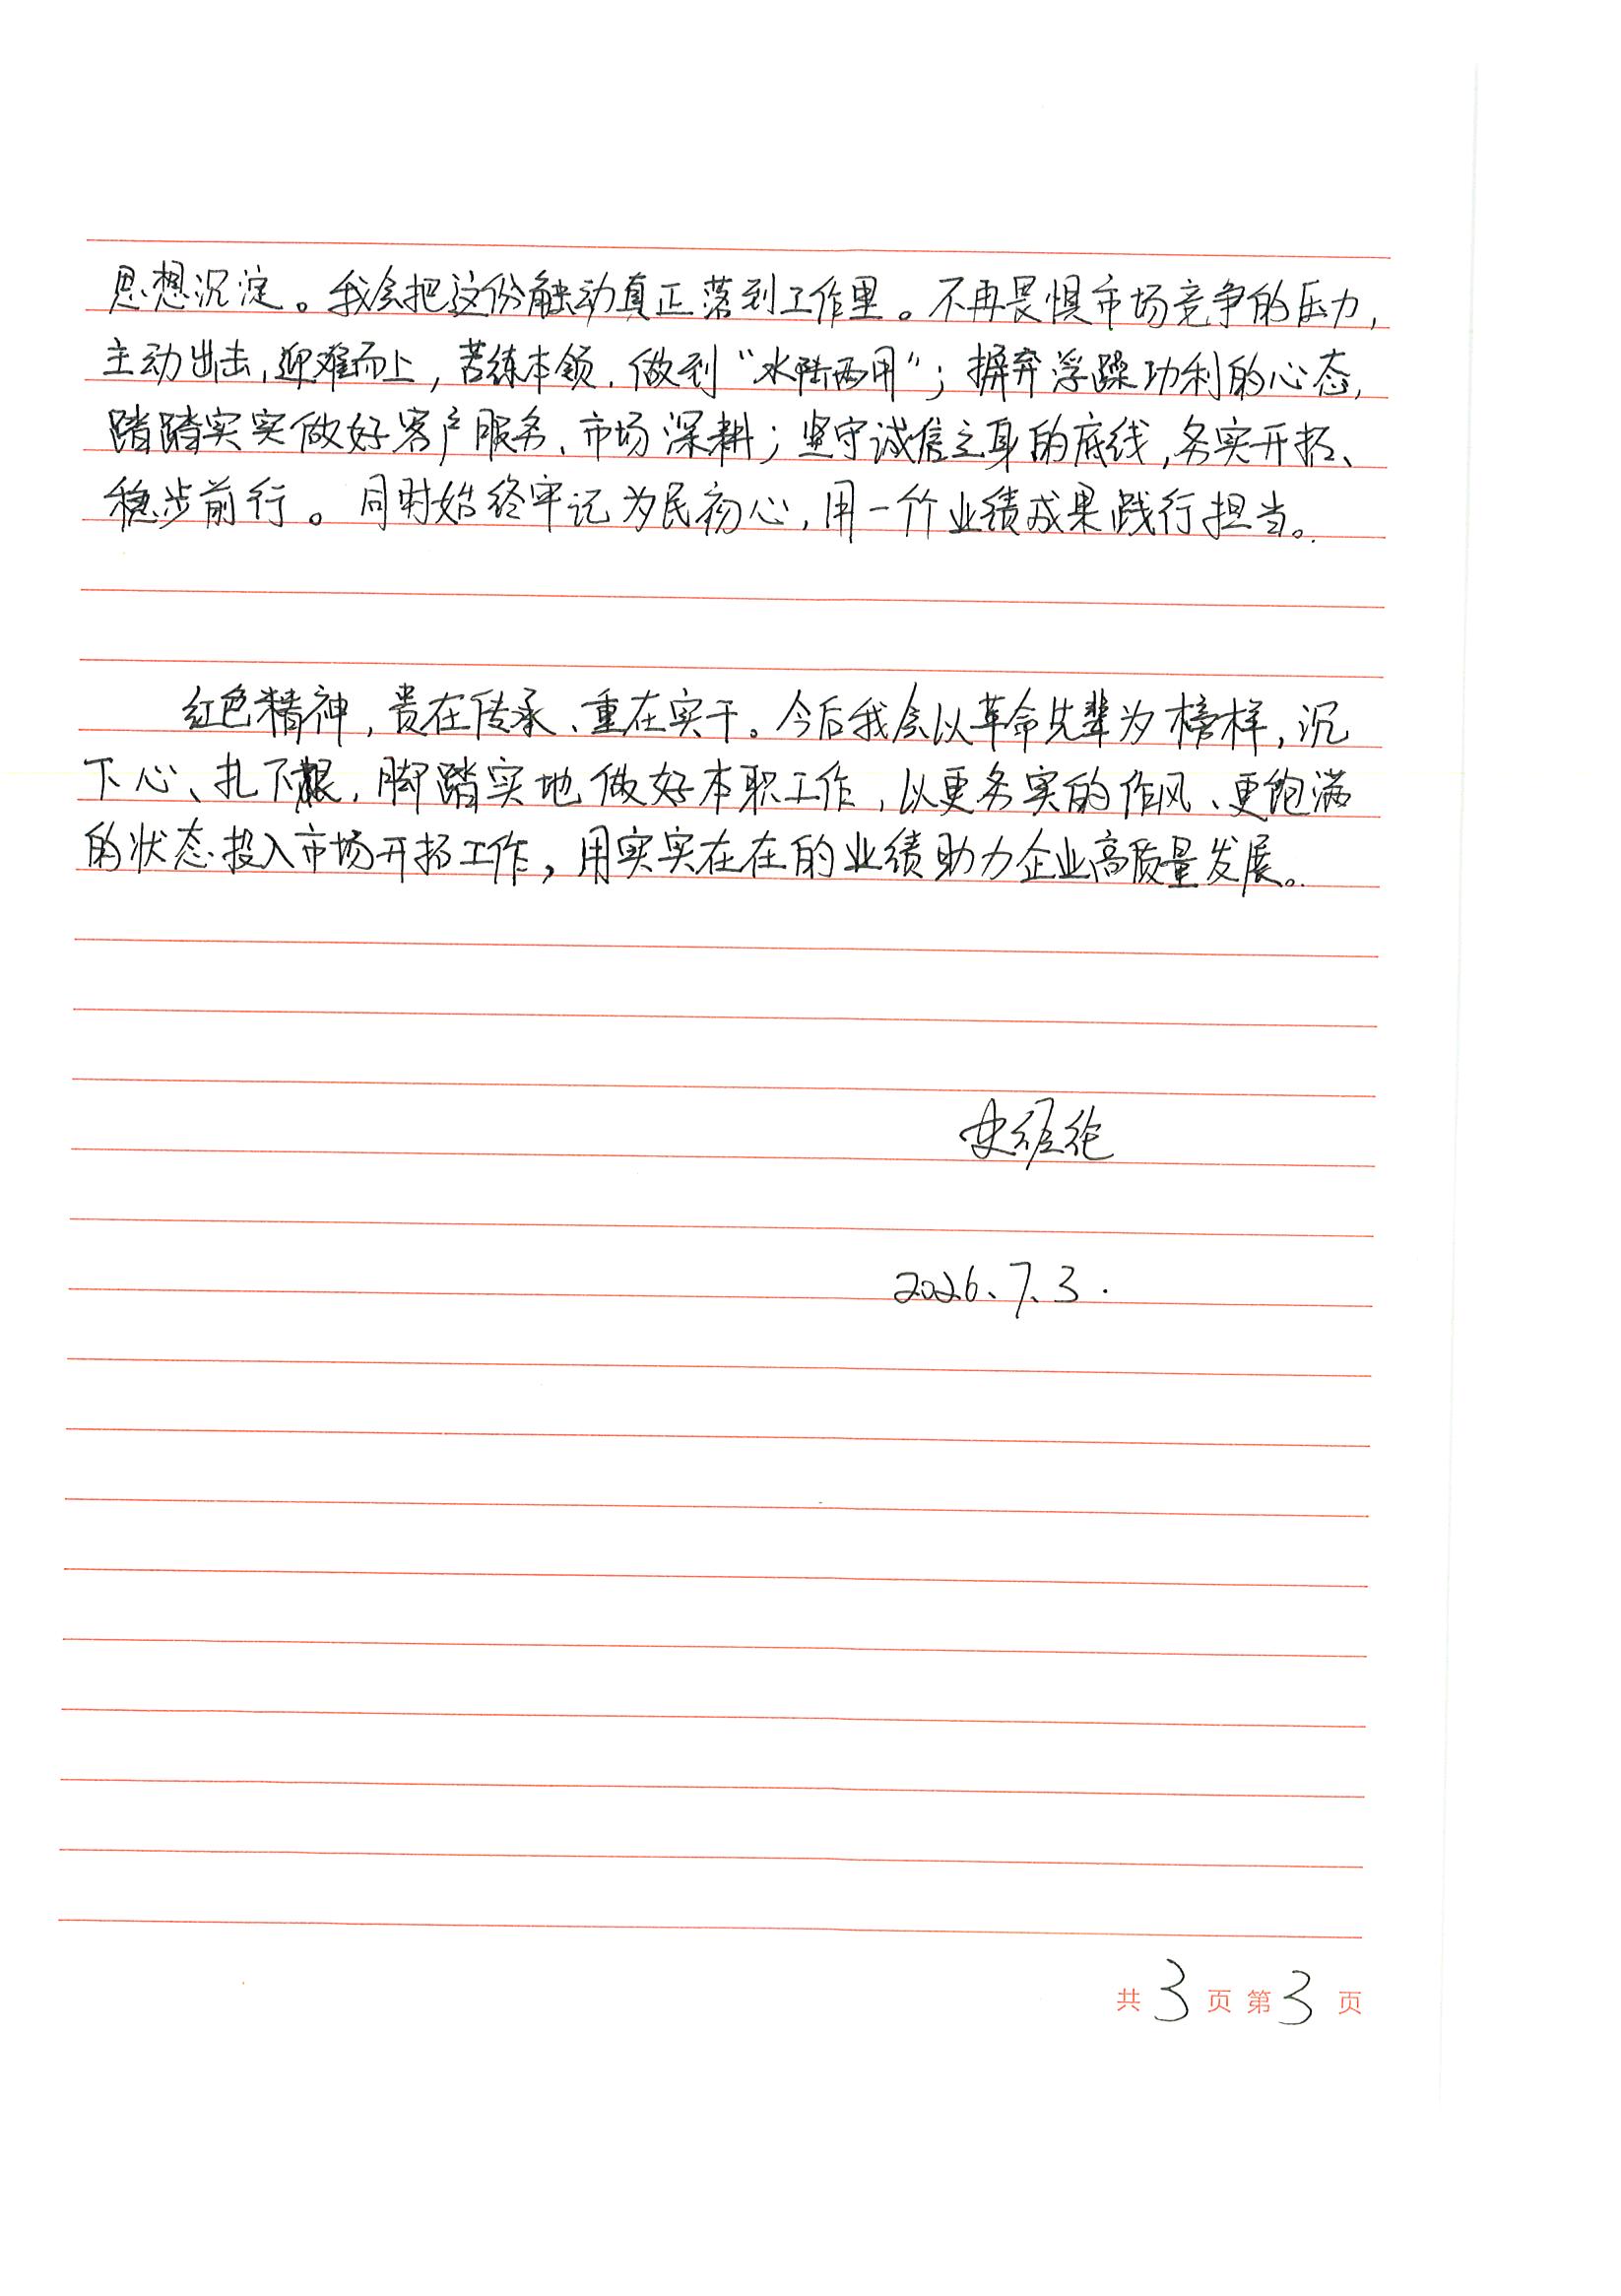 思想沉淀。我会把这份触动真正落到工作里。不再畏惧市场竞争的压力,
主动出击,迎难而上,苦练本领,做到“水陆两用”;摒弃浮躁功利的心态,
踏踏实实做好客户服务、市场深耕;坚守诚信立身的底线,务实开拓、
稳步前行。同时始终牢记为民初心,用一个业绩成果践行担当。
红色精神,贵在传承、重在实干。今后我会以革命先辈为榜样,沉
下心、扎下根,脚踏实地做好本职工作,以更务实的作风、更饱满
的状态投入市场开拓工作,用实实在在的业绩助力企业高质量发展。
史经纶
2026、7、3.
共3页第3页